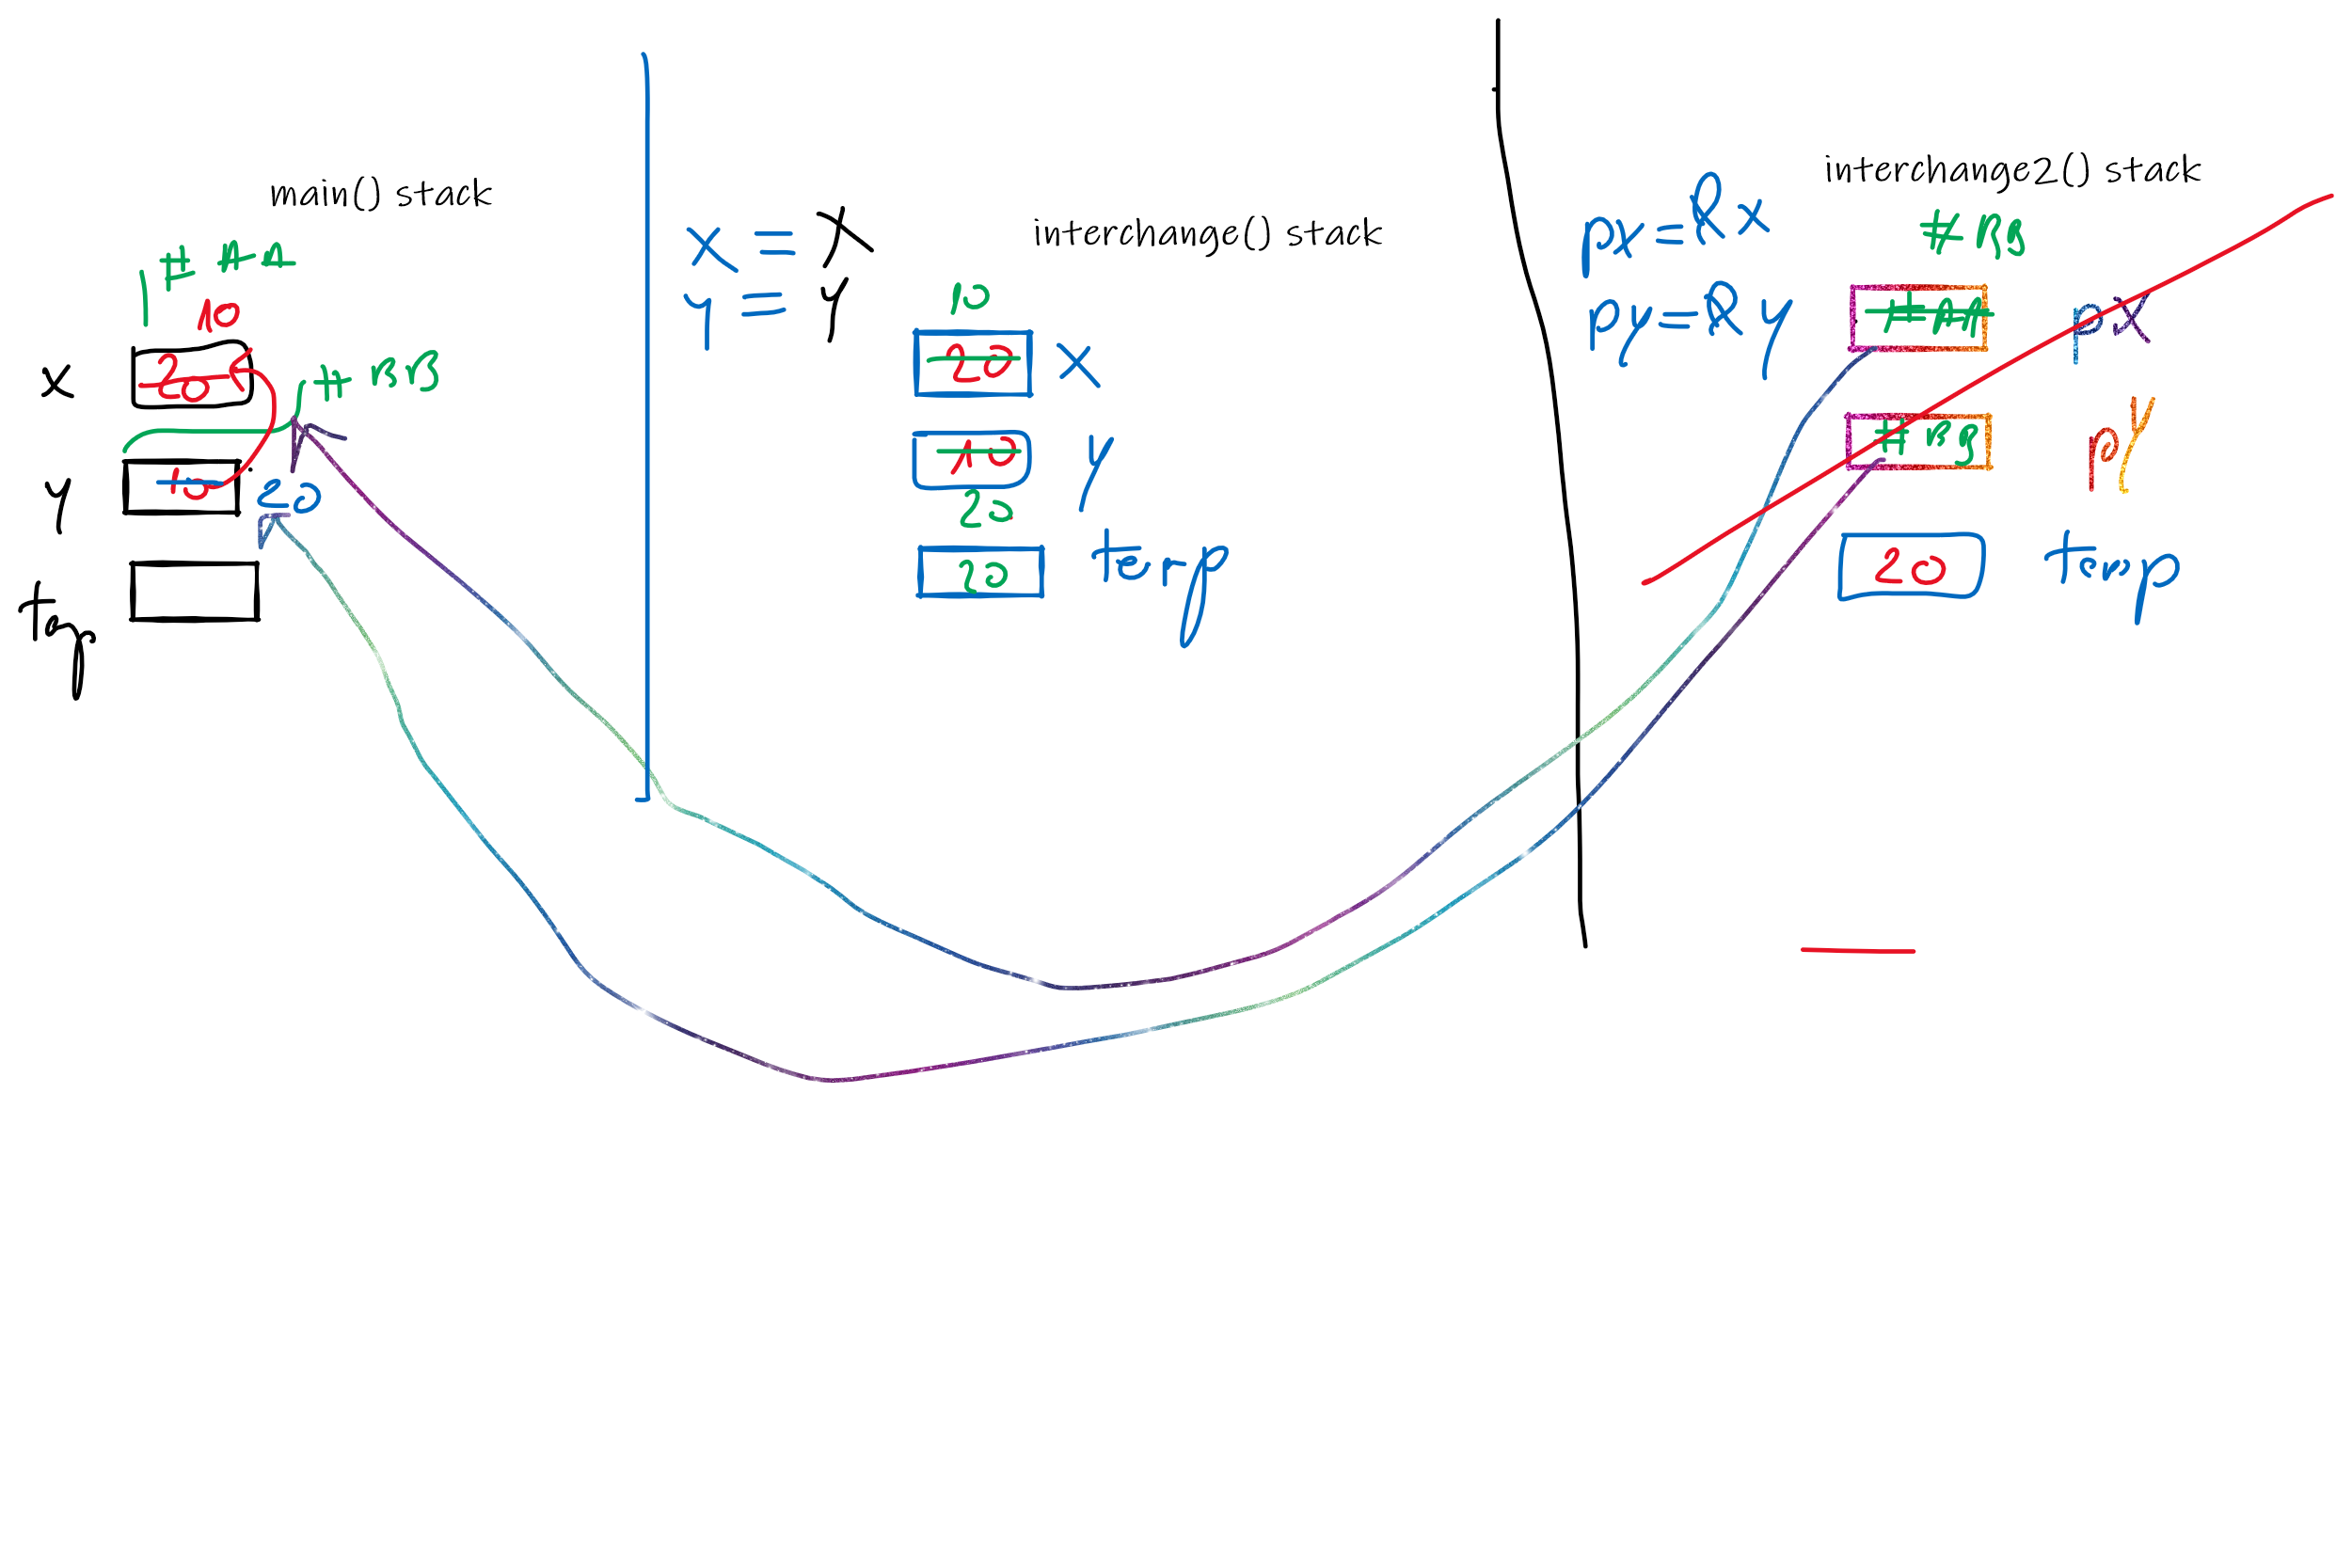 main() stack
# AA
10
x
20
# BB
y
10
20
tmp
x = x
y = y
interchange() stack
10
20
x
10
y
20
20
temp
px=&x
py=&y
interchange2() stack
# BB
# AA
px
# BB
py
20
temp